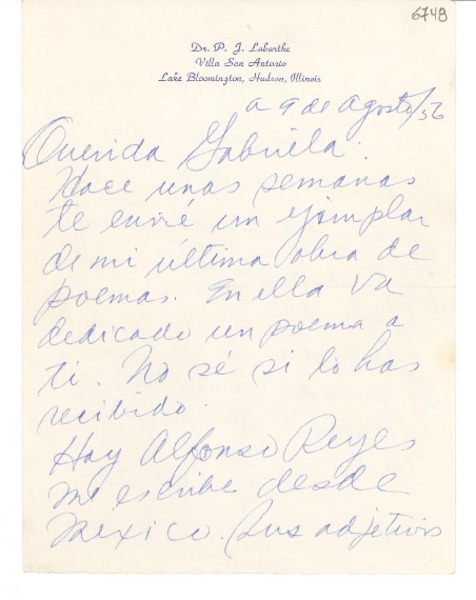 6748
Dr. P. J. Labarthe
Villa San Antonio
Lake Bloomington, Hudson, Illinois
a 9 de agosto/56
Querida Gabriela:
Hace unas semanas
te envié un ejemplar
de mi última obra de
poemas. En ella va
dedicado un poema a
ti. No sé si lo has
recibido.
Hoy Alfonso Reyes
me escribe desde
México. Sus adjetivos